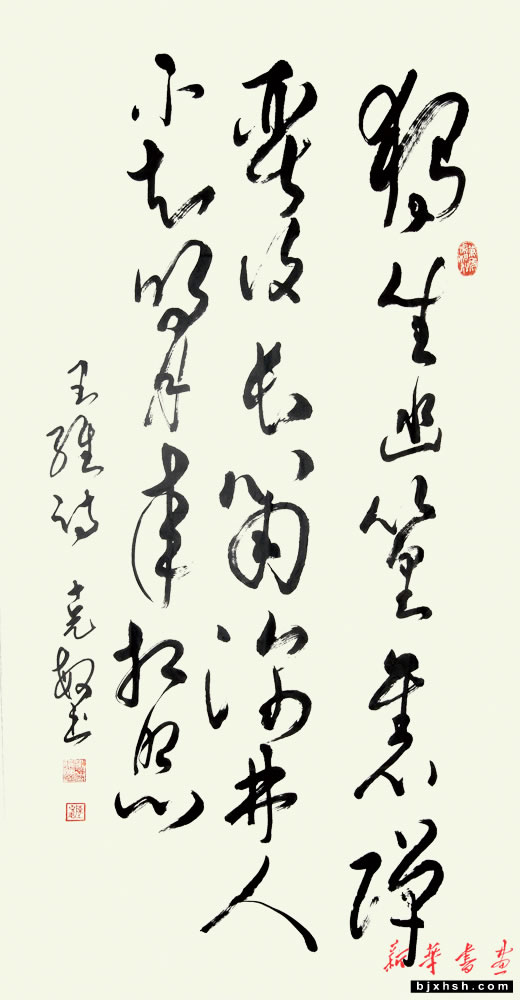 獨坐幽篁裏彈
琴復長嘯深林人
不知明月來相照
王維詩 克敏書
新華書畫
www.bjxhsh.com